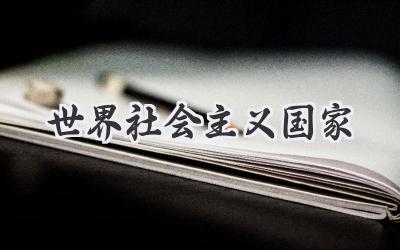 世界社会主义国家